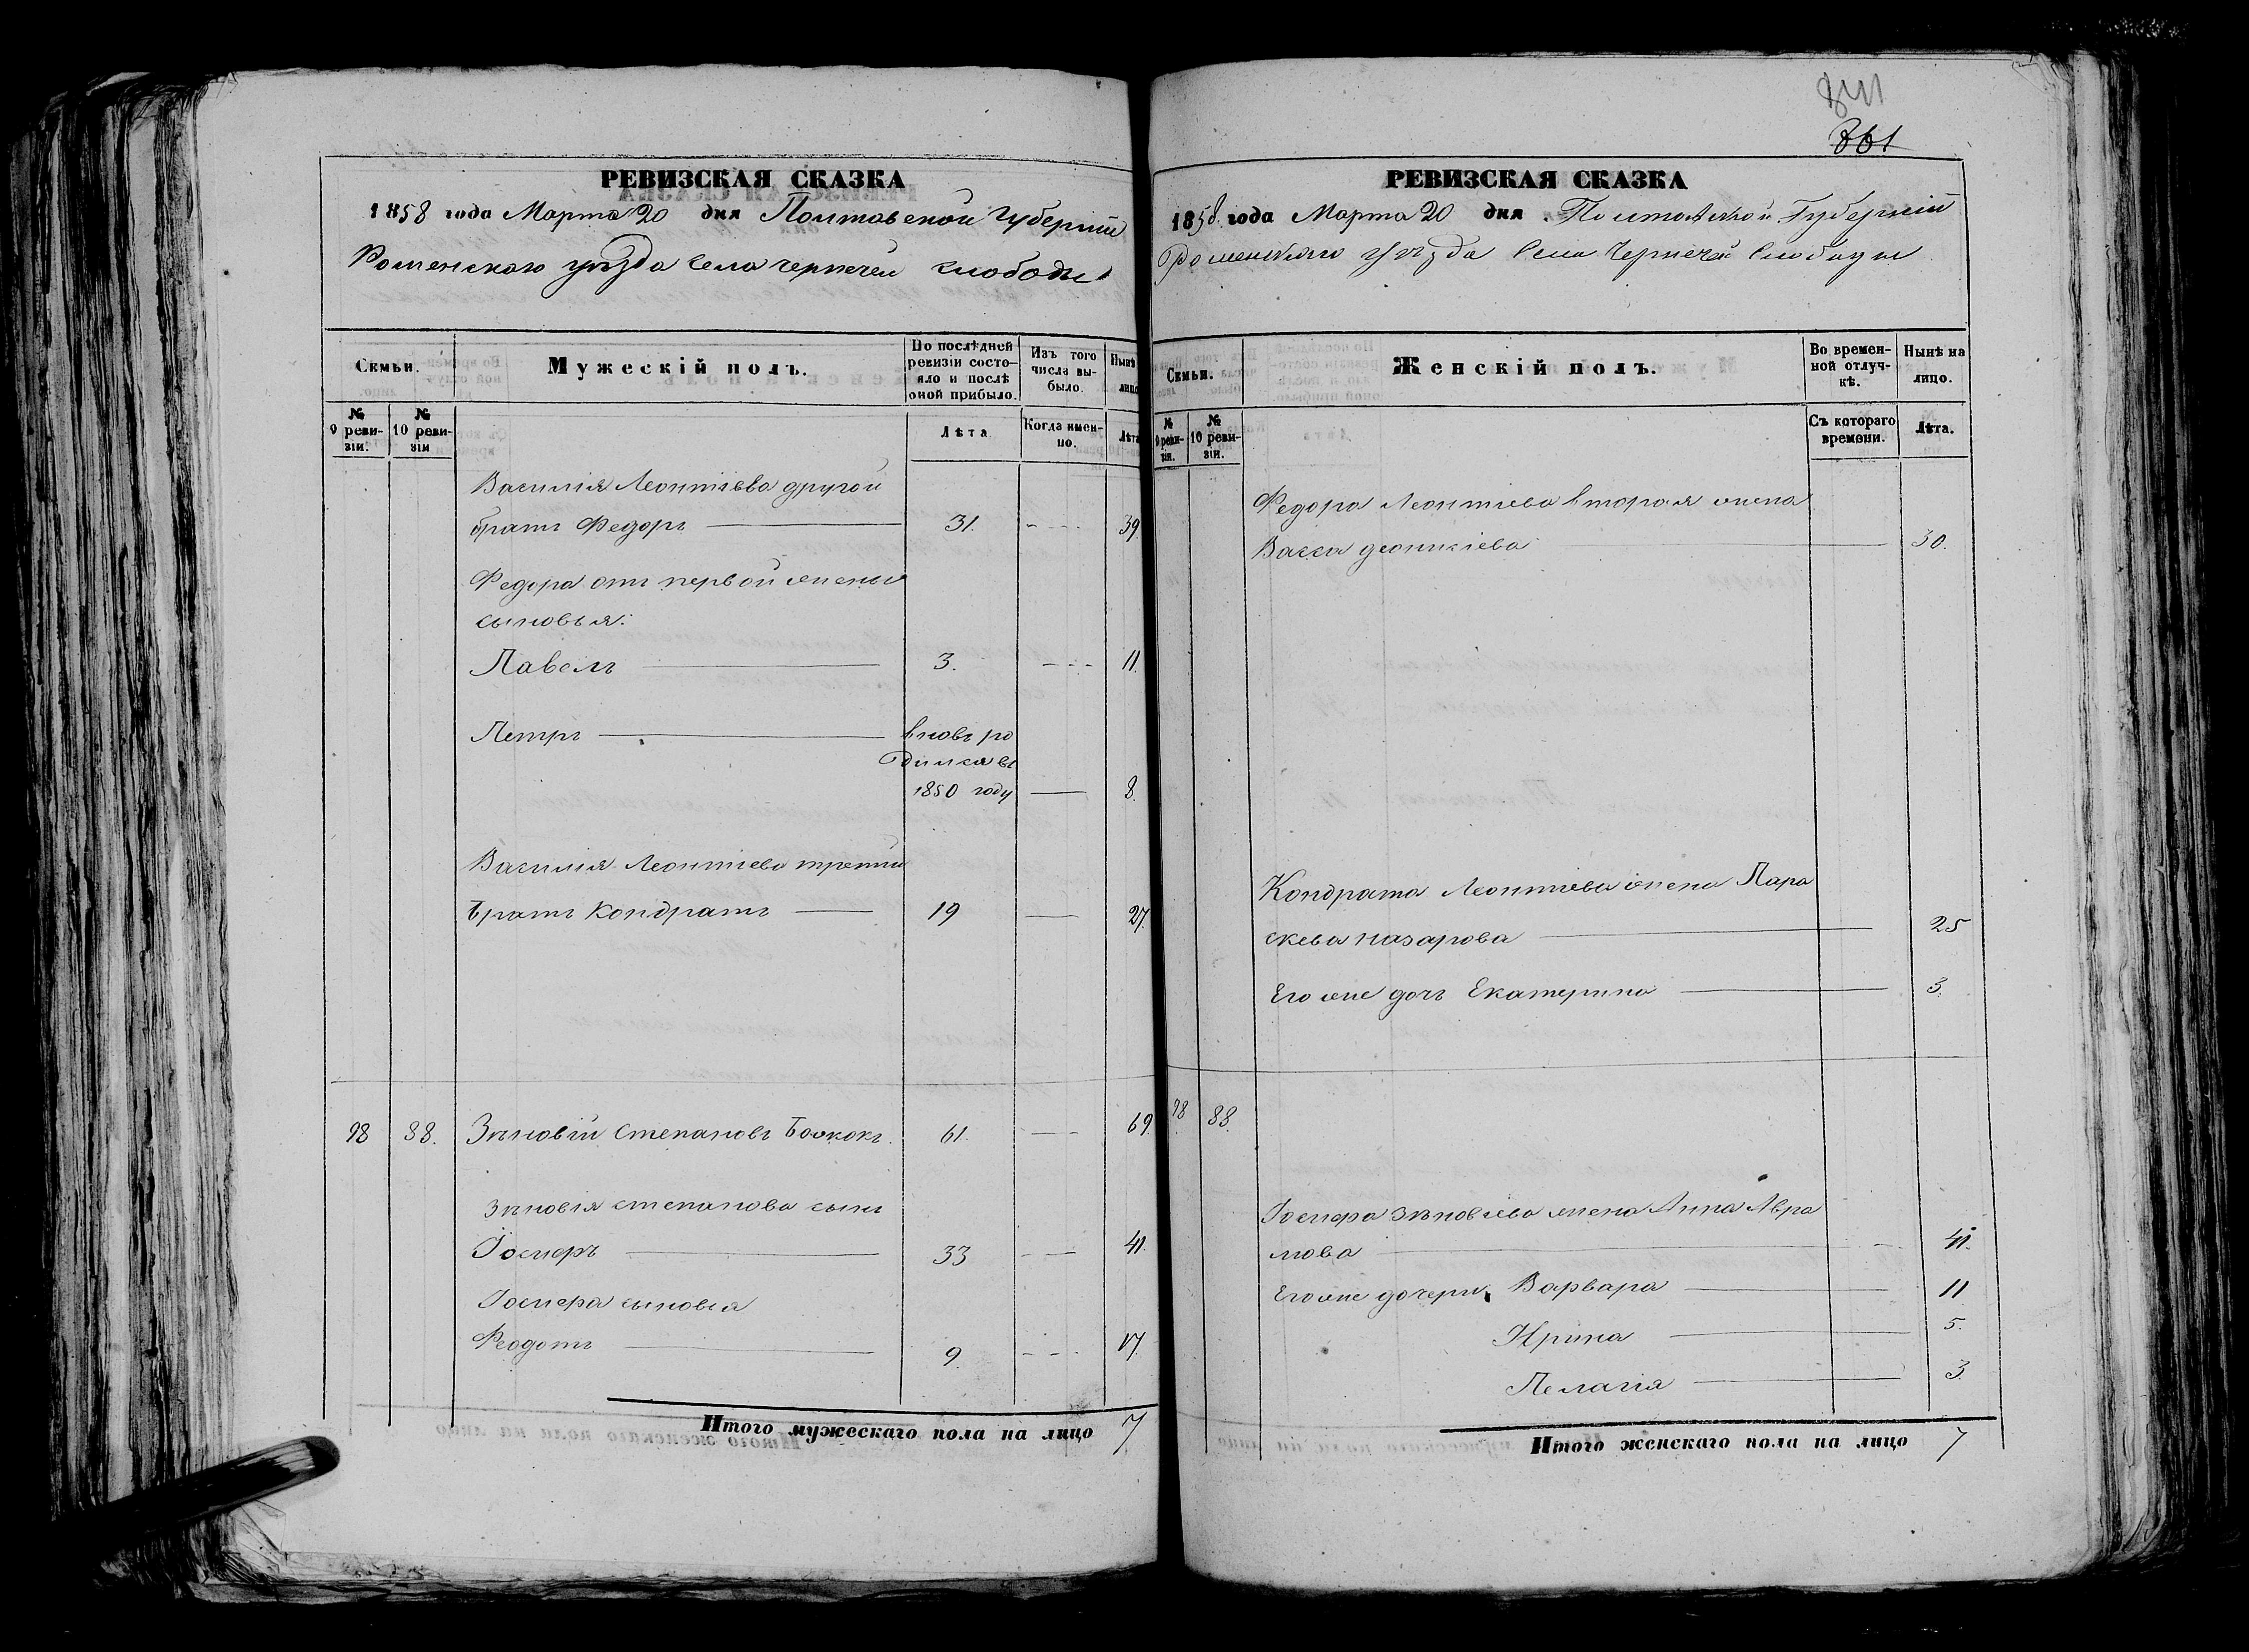 841
361
РЕВИЗСКАЯ СКАЗКА
1858 года Марта 20 дня Полтавской Губернии
Роменскаго уѣзда Села Чернечей слободы
Семьи.
Мужескій полъ.
По послѣдней ревизіи состояло и послѣ оной прибыло.
Изъ того числа выбыло.
Нынѣ лицо
№ 9 ревизіи.
№ 10 ревизіи
Лѣта
Когда именно.
Лѣта
Василія Леонтіева другой
братъ Федоръ 31. 39.
Федора отъ первой жены
сыновья:
Павелъ 3. 11.
Петръ вновь ро
дился въ
1850 году 8.
Василія Леонтіева третій
братъ Кондратъ 19 27.
98 88. Зѣновій Степановъ 61. 69.
Зѣновія степанова сынъ
Іосифъ 33 41.
Іосифа сыновья
Феодотъ 9. 17.
Итого мужескаго пола на лицо 7
РЕВИЗСКАЯ СКАЗКА
1858 года Марта 20 дня Полтавской Губерніи
Роменскаго уѣзда Села Чернечей Слободы
Семьи.
Женскій полъ.
Во временной отлучкѣ.
Нынѣ на лицо.
№ 9 ревизіи.
№ 10 ревизіи.
Съ котораго времени.
Лѣта.
Федора Леонтіева вторая жена
Васса 30.
Кондрата Леонтіева жена Пара
скева назарова 25
Его же дочь Екатерина 3.
98 88.
Іосифа Зѣновіева жена Анна Авра
мова 41.
Его же дочери Варвара 11
Ирина 5.
Пелагія 3
Итого женскаго пола на лицо 7